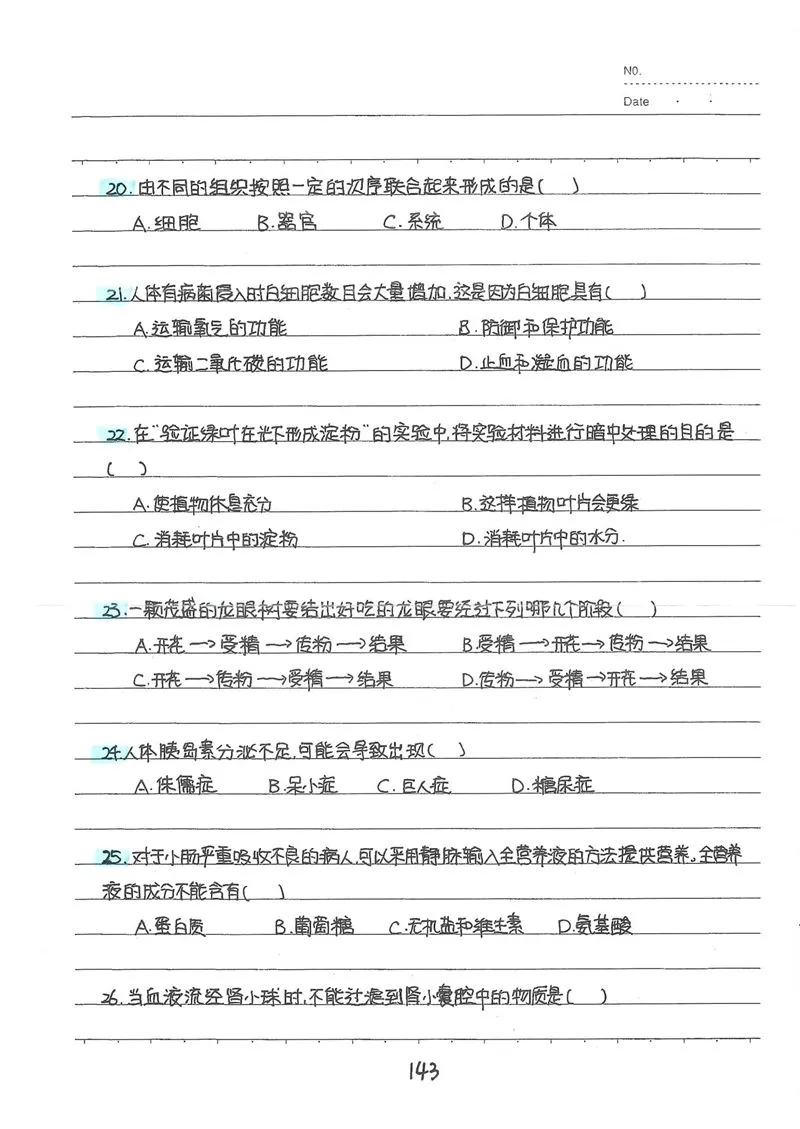 NO.
Date
20. 由不同的组织按照一定的次序联合起来形成的是( )
A.细胞 B.器官 C.系统 D.个体
21.人体有病菌侵入时白细胞数目会大量增加,这是因为白细胞具有( )
A.运输氧气的功能 B.防御和保护功能
C.运输二氧化碳的功能 D.止血和凝血的功能
22.在“验证绿叶在光下形成淀粉”的实验中,将实验材料进行暗中处理的目的是
( )
A.使植物休息充分 B.这样植物叶片会更绿
C.消耗叶片中的淀粉 D.消耗叶片中的水分.
23.一颗茂盛的龙眼树要结出好吃的龙眼要经过下列哪几个阶段( )
A.开花→受精→传粉→结果 B.受精→开花→传粉→结果
C.开花→传粉→受精→结果 D.传粉→受精→开花→结果
24人体胰岛素分泌不足,可能会导致出现( )
A.侏儒症 B.呆小症 C.巨人症 D.糖尿症
25.对于小肠严重吸收不良的病人,可以采用静脉输入全营养液的方法提供营养。全营养
液的成分不能含有( )
A.蛋白质 B.葡萄糖 C.无机盐和维生素 D.氨基酸
26.当血液流经肾小球时,不能过滤到肾小囊腔中的物质是( )
143